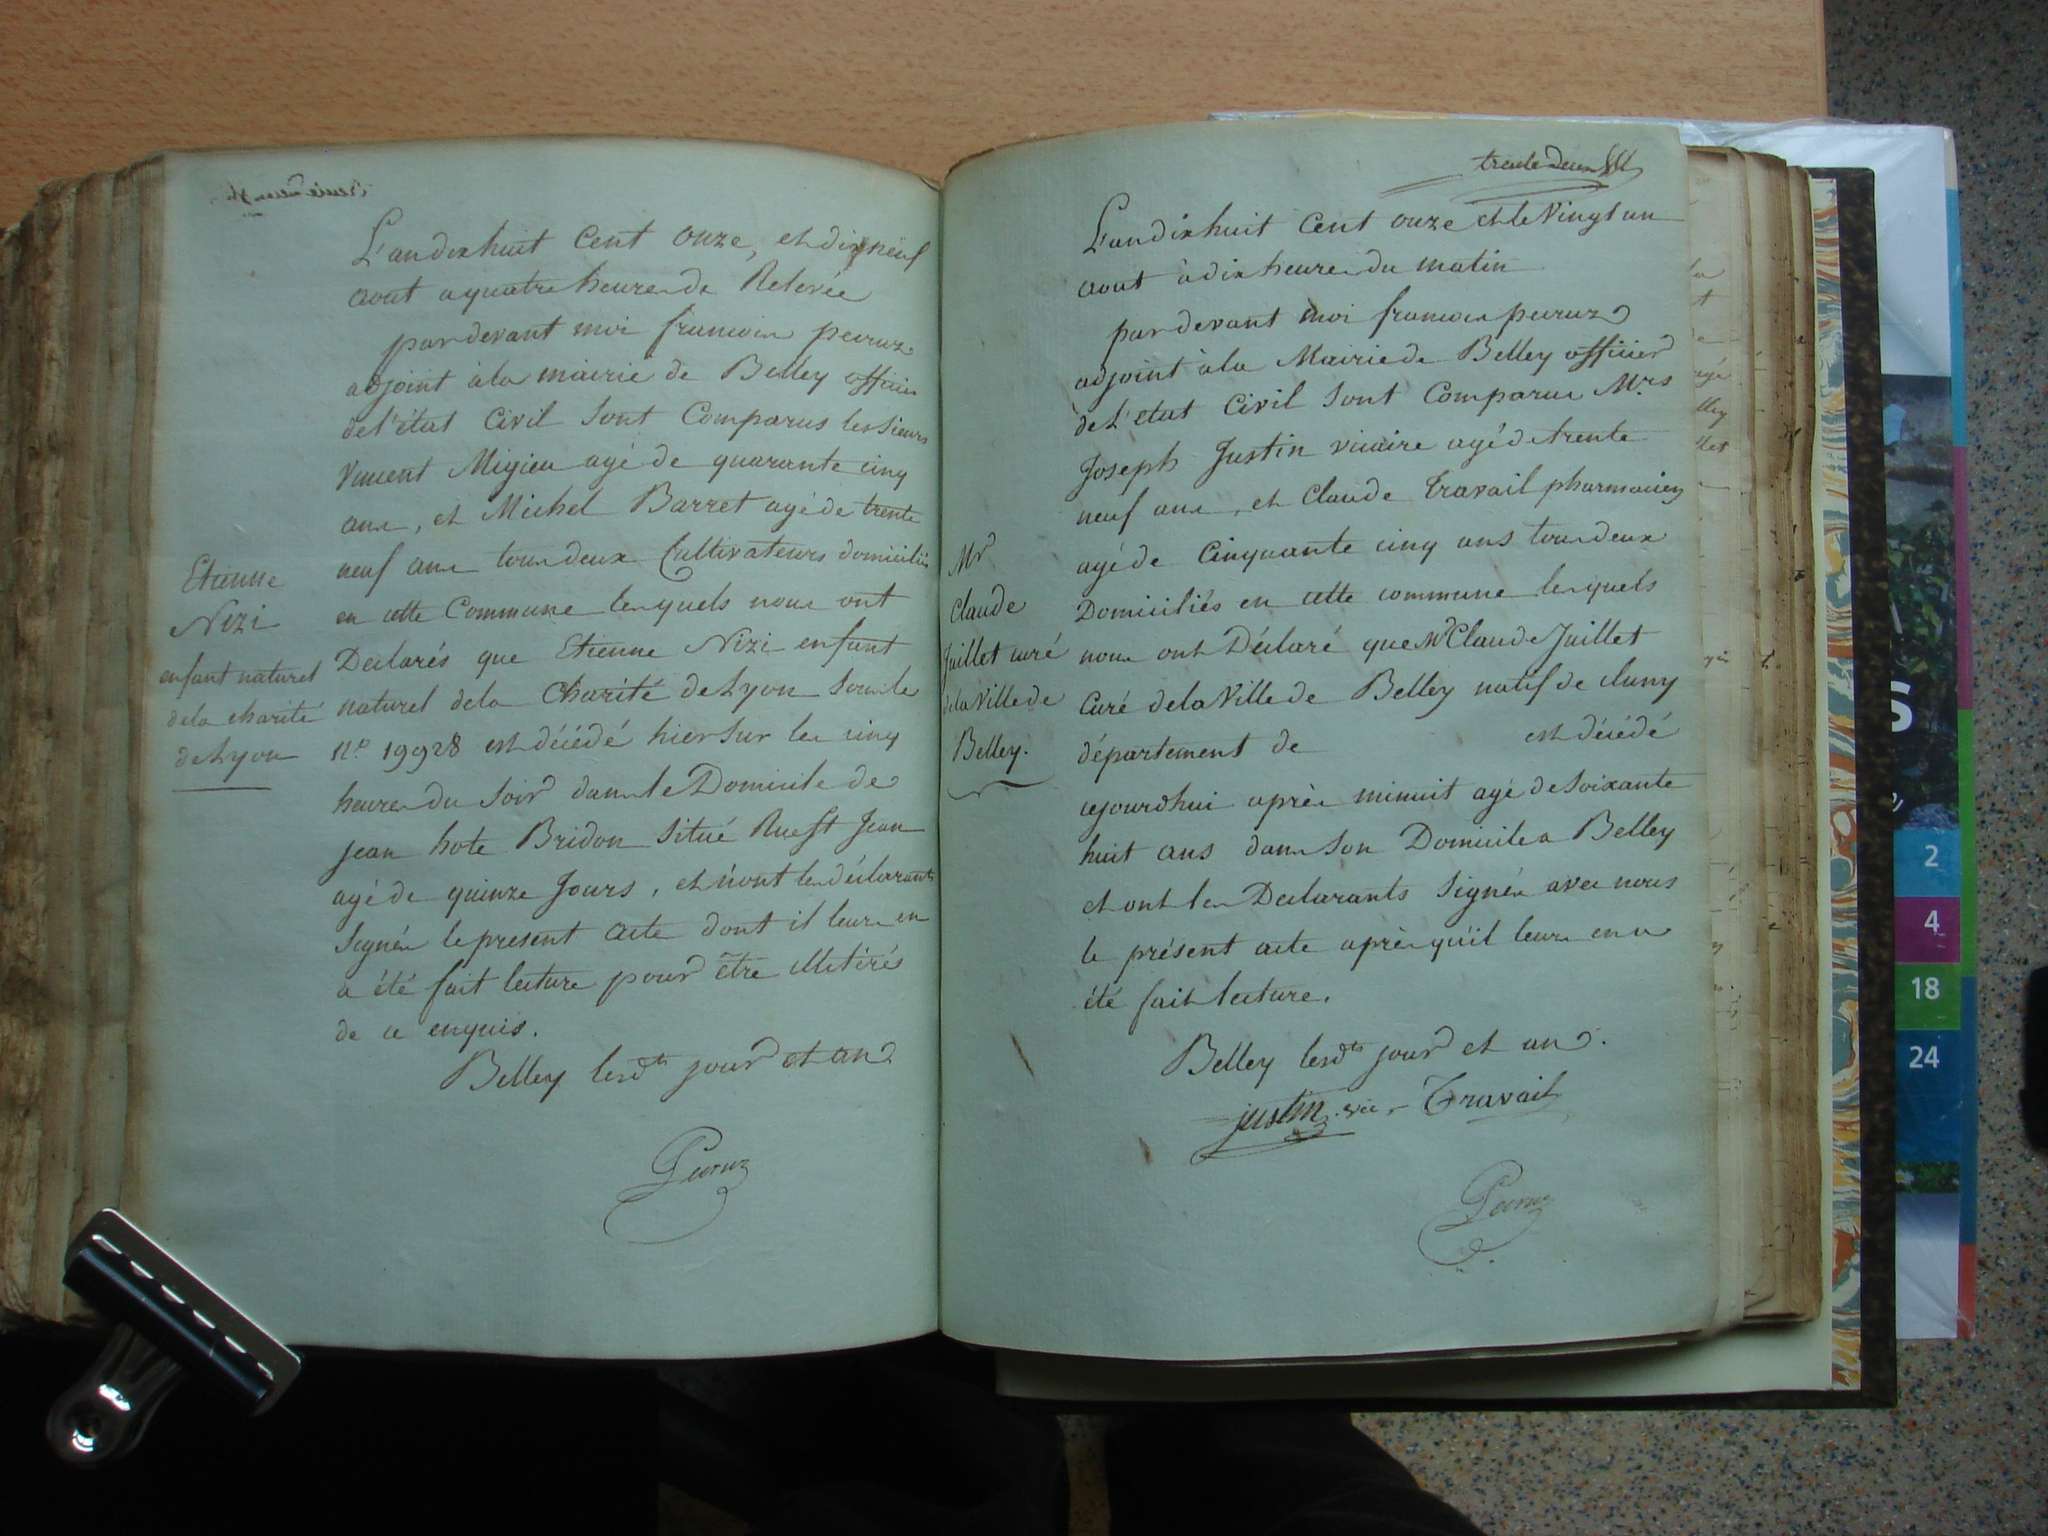 L'an dix huit Cent onze, et dix neuf
aout a quatre heures de Relevée
par devant moi francois peiruz
adjoint à la mairie de Belley officier
de l'état Civil Sont Comparus les Sieurs
Vincent Migieu agé de quarante cinq
ans, et Michel Barret agé de trente
neuf ans tous deux Cultivateurs domiciliés
en cette Commune lesquels nous ont
Declarés que Etienne Nizi enfant
naturel de la Charité de Lyon Sous le
N.º 19928 est décédé hier sur les cinq
heures du Soir dans le Domicile de
jean hote Bridon Situé Rue St Jean
agé de quinze Jours, et n'ont les déclarants
Signés le present acte dont il leurs en
a été fait lecture pour être illetirés
de ce enquis.
Belley lesdts jour et an
Peiruz
Etienne
Nizi
enfant naturel
de la charité
de Lyon
trente deux
L'an dix huit Cent onze et le Vingt un
aout à dix heures du matin
par devant moi francois peiruz
adjoint à la Mairie de Belley officier
de L'etat Civil Sont Comparus Mrs
Joseph Justin vicaire agé de trente
neuf ans, et Claude Travail pharmacien
agé de Cinquante cinq ans tous deux
Domiciliés en cette commune lesquels
nous ont Déclaré que Mr Claude Juillet
Curé de la Ville de Belley natif de cluny
département de est décédé
cejourdhui après minuit agé de Soixante
huit ans dans Son Domicile a Belley
et ont les Declarants Signés avec nous
le présent acte après qu'il leurs en a
été fait lecture.
Belley lesdts jour et an.
justin vic. Travail
Peiruz
Mr
Claude
Juillet curé
de la Ville de
Belley.
S
2
4
18
24